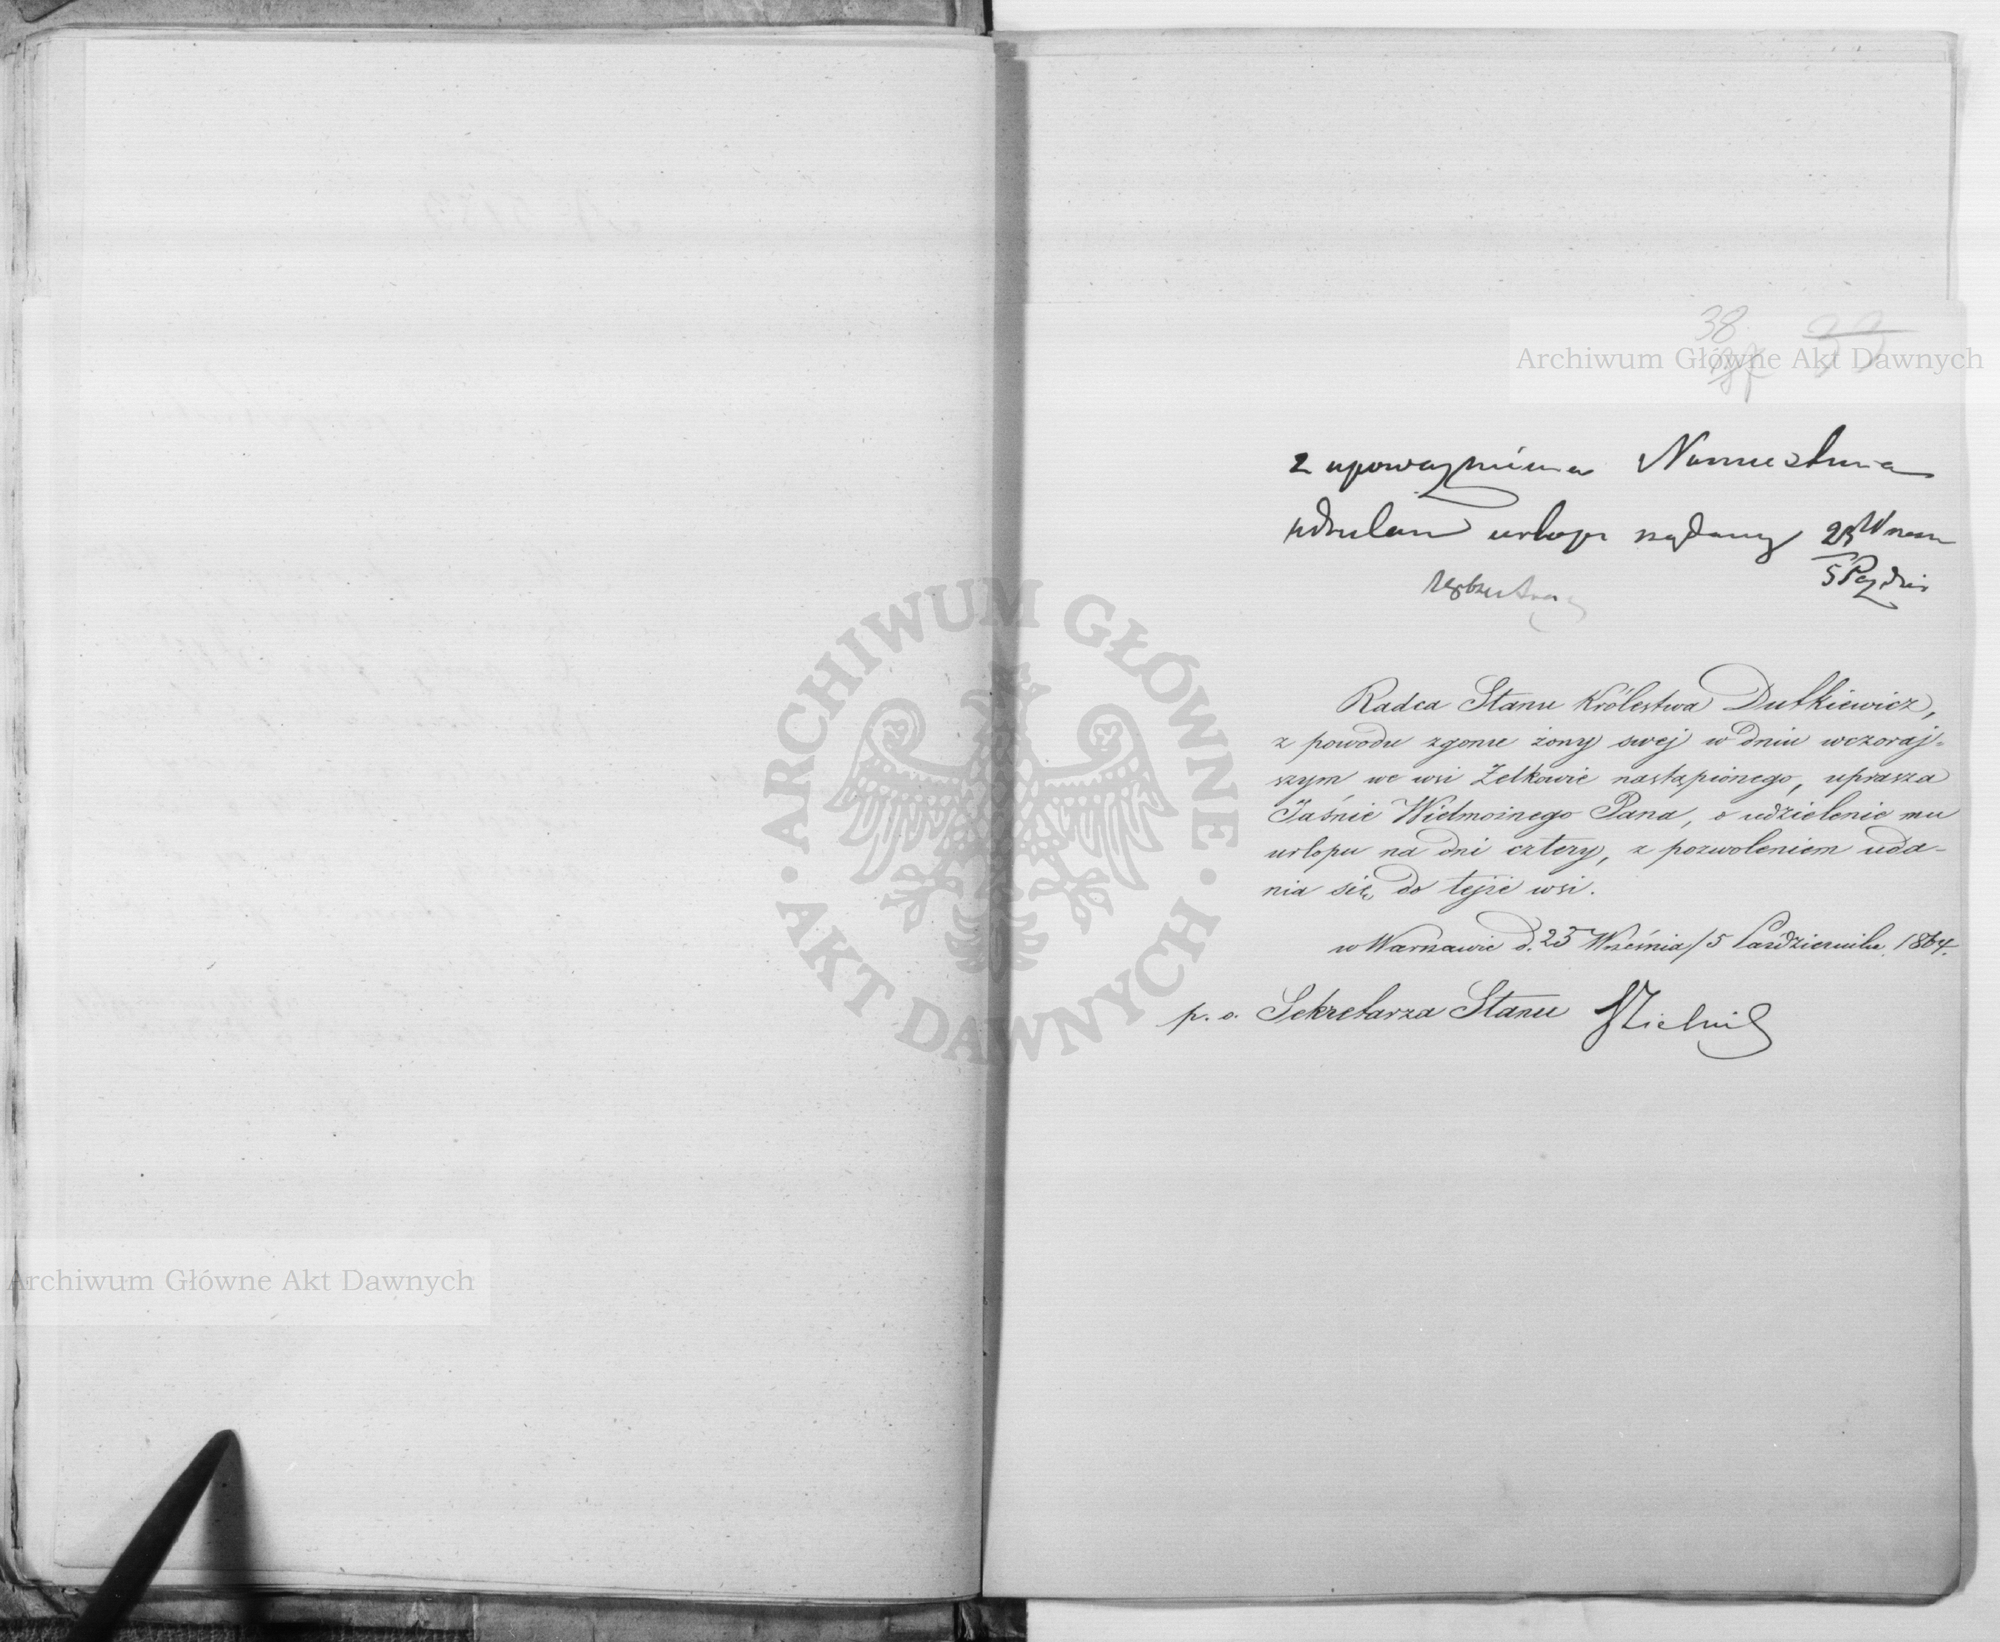 38 33
37
Archiwum Główne Akt Dawnych
z upoważnienia Namiestnika
udzielam urlopu żądany 23 Wrześn
5 Paźdier
Radca Stanu Królestwa Dutkiewicz,
z powodu zgonu żony swej w dniu wczoraj=
szym we wsi Żelkowie nastąpionego, uprasza
Jaśnie Wielmożnego Pana, o udzielenie mu
urlopu na dni cztery, z pozwoleniem uda-
nia się do tejże wsi.
w Warszawie d. 23 Września/5 Października 1864.
p. o. Sekretarza Stanu
ARCHIWUM GŁÓWNE
AKT DAWNYCH
Archiwum Główne Akt Dawnych